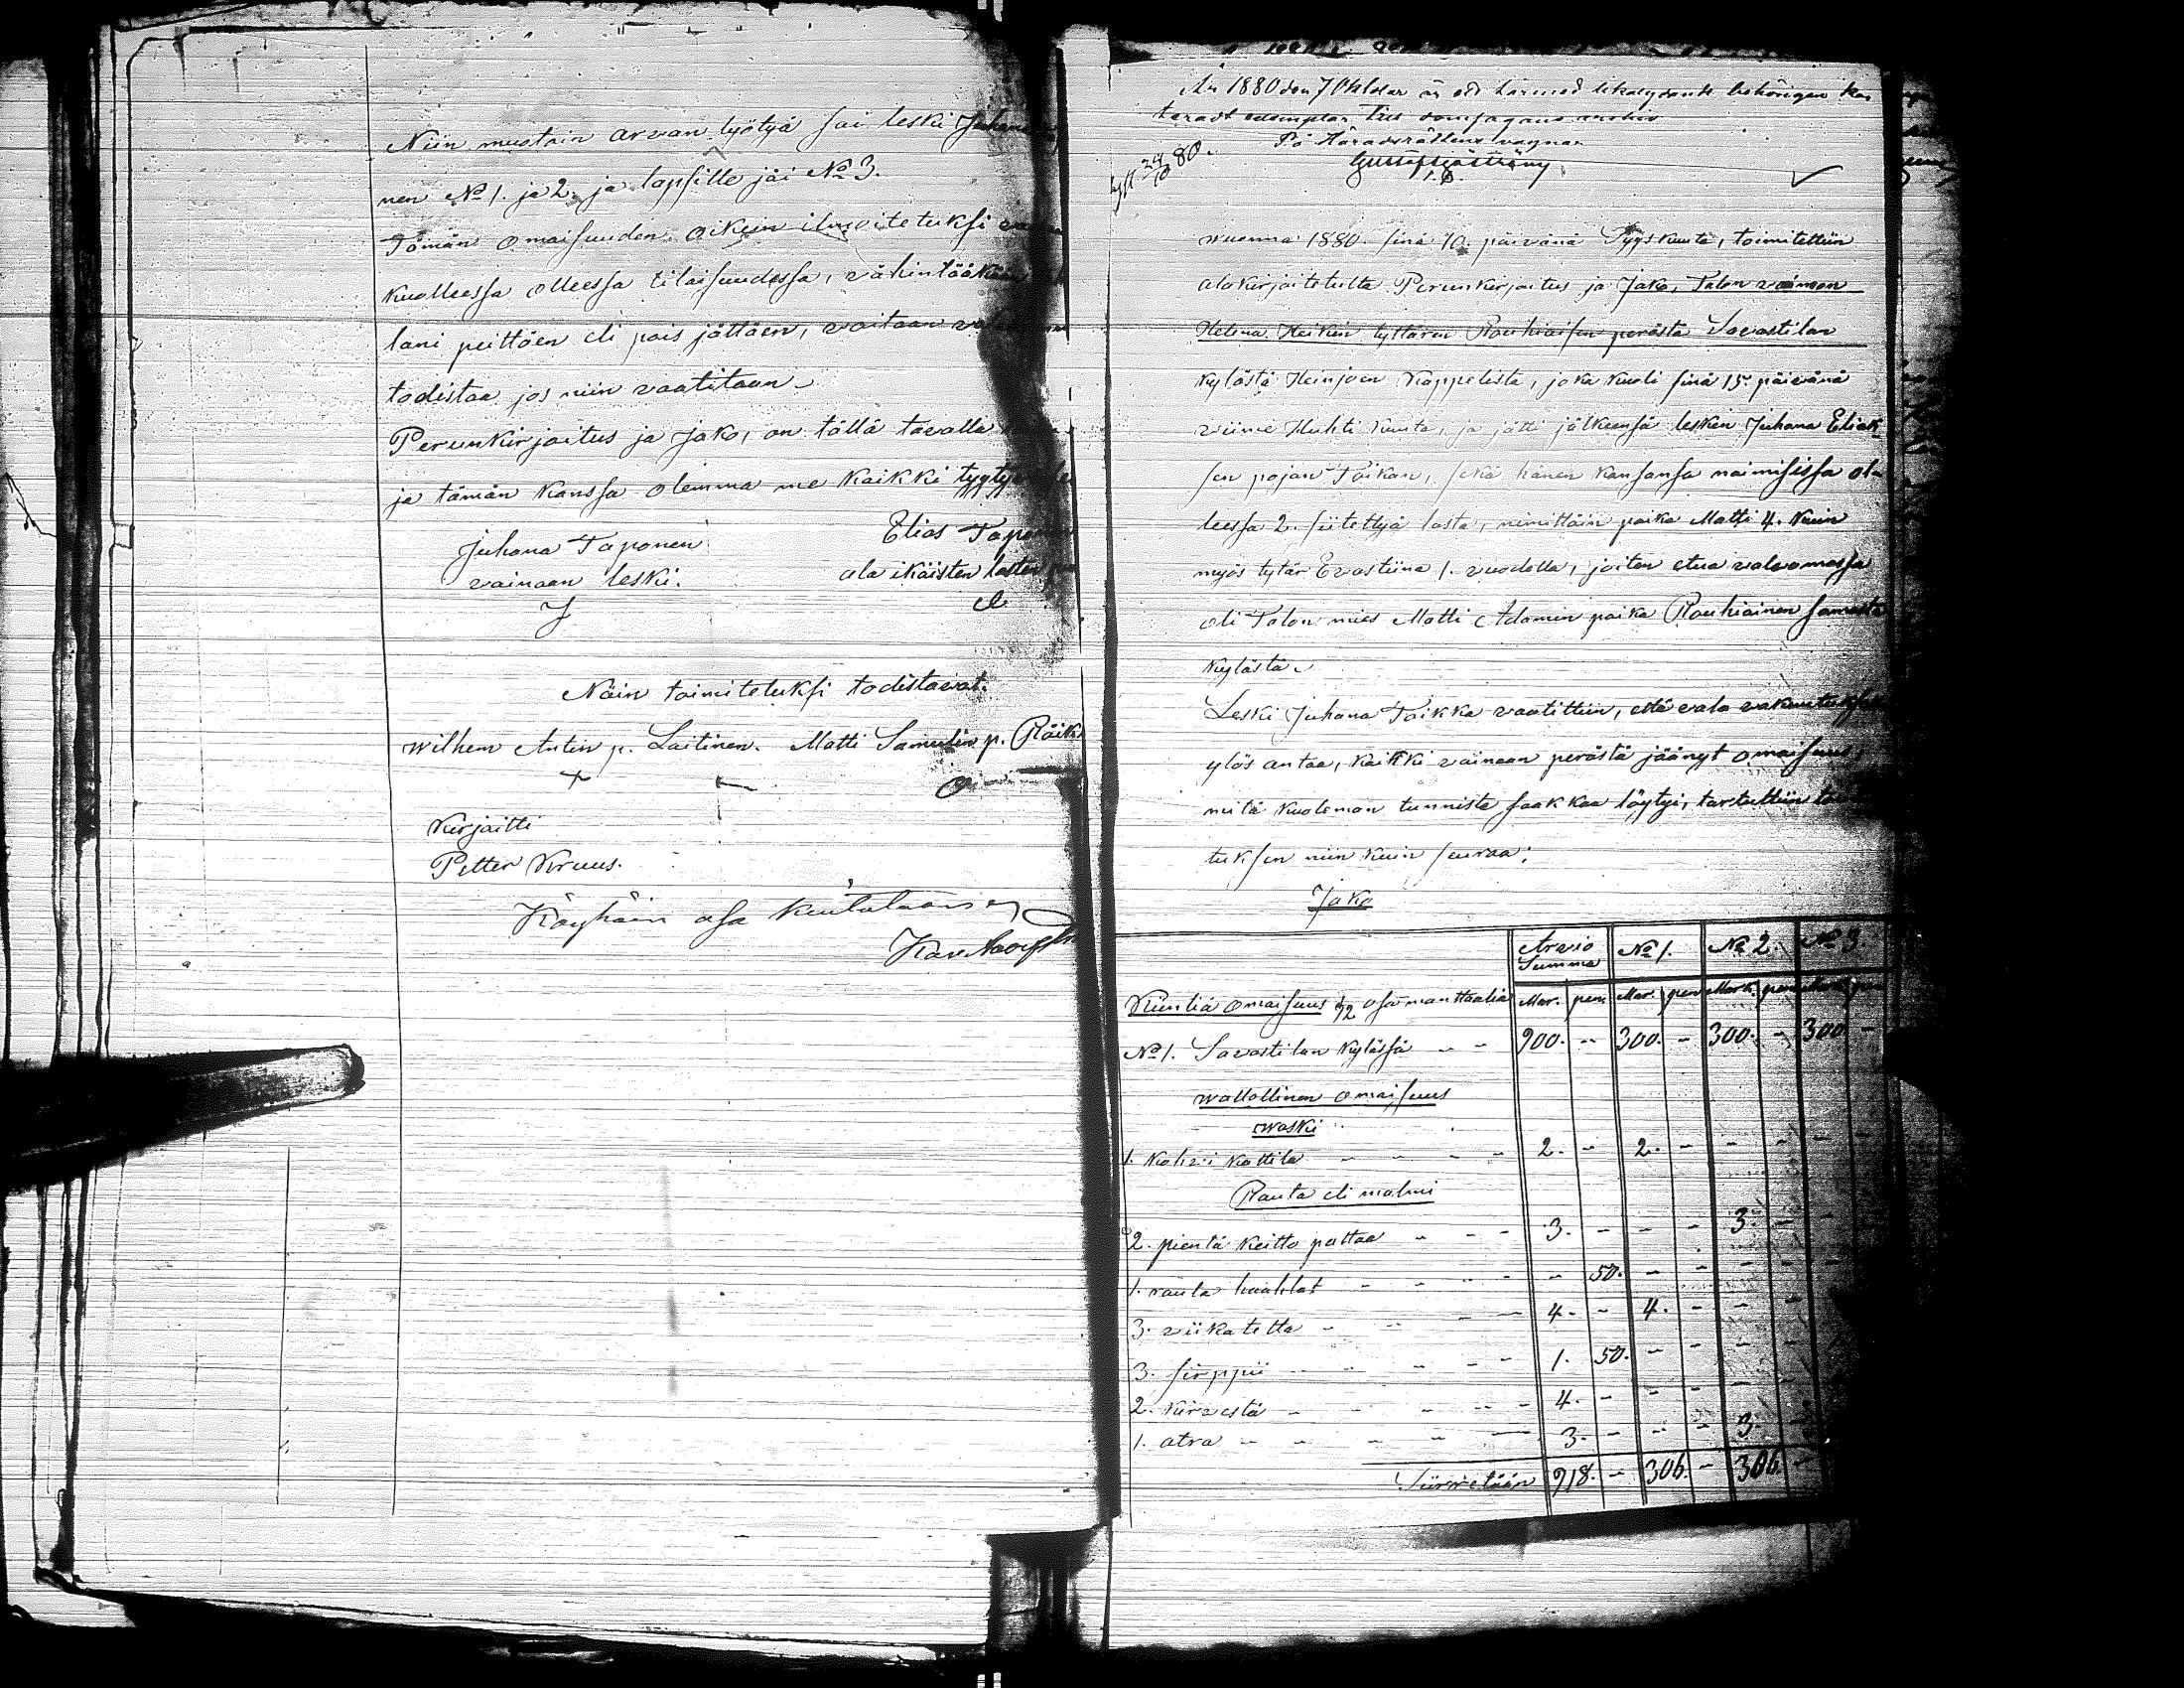 Niin muotoin arvan lyötyä sai leski Juhana
nen No 1. ja 2. ja lapsille jäi No 3.
Tämän omaisuuden oikein ilmoitetuksi
kuolleessa olleessa tilaisuudessa, vähintääkään
lani peittäen eli pois jättäen, voitaan
todistaa jos niin vaatitaan
Perunkirjoitus ja Jako, on tällä tavalla
ja tämän kanssa olemma me kaikki
Juhana Taponen
vainaan leski.
J
Elias
ala ikäisten lasten
Näin toimitetuksi todistavat.
Wilhem Antin p. Laitinen. Matti Samulin p.
Kirjoitti
Petter Kruus.
Köyhäin osa
År 1880 den 7 Oktober är ett härmed likalydande
exemplar
På Häradsrättens vägnar
24/10 80.
wuonna 1880. sinä 10. päivänä Syyskuuta, toimitettiin
alakirjoitetulta Perunkirjoitus ja Jako, Talon vaimon
Helena Heikin tyttären Rauhiaisen perästä Savastilan
kylästä Heinjoen Kappelista, joka kuoli sinä 15. päivänä
viime Huhti kuuta, ja jätti jälkeensä lesken Juhana Eliak
sen pojan Toikan, sekä hänen kanssansa naimisissa ol-
leessa 2. siitettyä lasta, nimittäin poika Matti 4. kuin
myös tytär Evastiina 1. vuodella, joiten etua valvomassa
oli Talon mies Matti Adamin poika Rauhiainen samasta
kylästä.
Leski Juhana Toikka vaatittiin, että vala
ylös antaa, kaikki vainaan perästä jäänyt omaisuus,
mitä kuoleman tunnista saakkaa löytyi, tartuttiin
tuksen niin kuin seuraa;
Jako
Arvio Summa No 1. No 2. No 3
Kiintiä omaisuus osa manttaalia Mar. pen. Mar. pen Mark. pen
No 1. Savastilan kylässä - - 900. - 300. - 300. - 300 -
wallollinen omaisuus
waski
1. Kahvi kattila - - - - 2. - 2. - - - -
Rauta eli malmi
2. pientä keitto pattaa - - - 3. - - - 3. - -
1. rauta - - - - - 50. - - - -
3. viikatetta - - - - 4. - 4. - - -
3. sirppii - - - - 1. 50. - - - -
2. kirvestä - - - - 4. - - - -
1. atra - - - - - 3. - - - 3. -
Siirretään 918. - 306. - 306. -